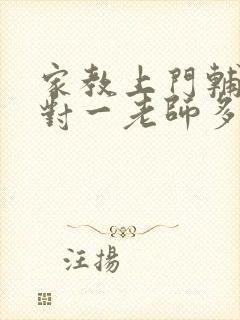 家教上門輔
對一老師多
汪揚